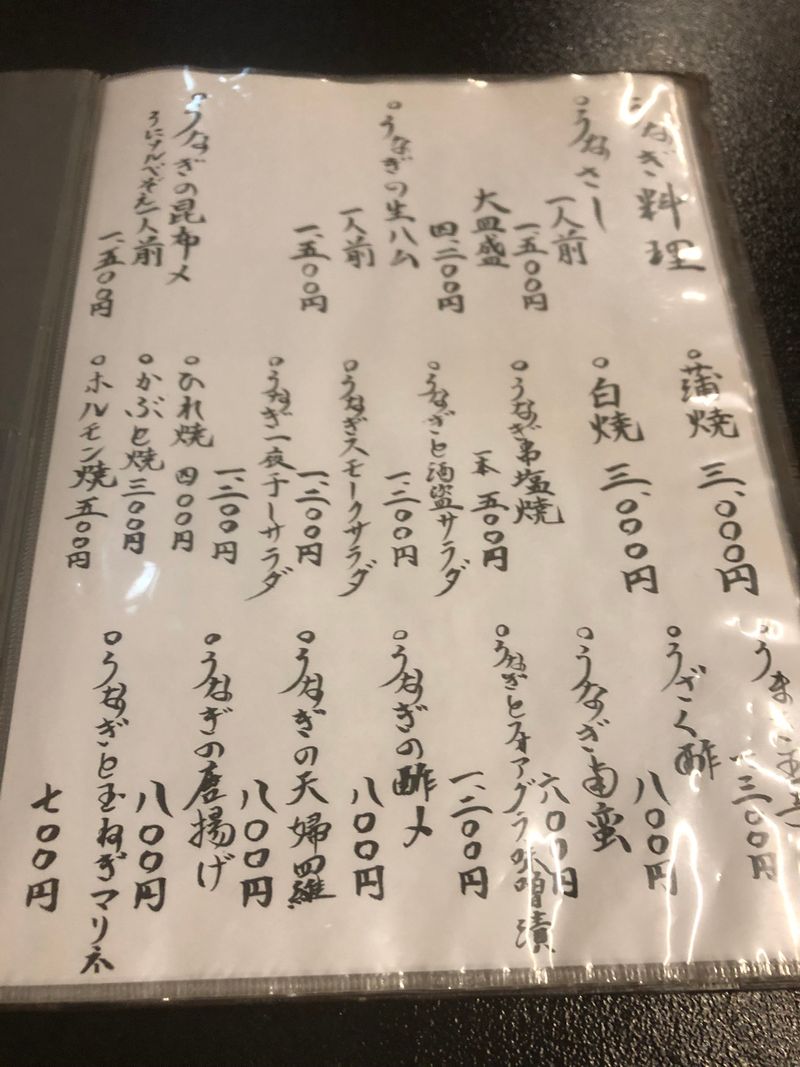 うなぎ料理
○うなさし
一人前
一、五〇〇円
大皿盛
四、二〇〇円
○うなぎの生ハム
一人前
一、五〇〇円
○うなぎの昆布〆
一人前
一、五〇〇円
○蒲焼 三、〇〇〇円
○白焼 三、〇〇〇円
○うなぎ串塩焼
一本 五〇〇円
○うなぎと酒盗サラダ
一、二〇〇円
○うなぎスモークサラダ
一、二〇〇円
○うなぎ一夜干しサラダ
一、二〇〇円
○ひれ焼 四〇〇円
○かぶと焼 三〇〇円
○ホルモン焼 五〇〇円
○うま
三〇〇円
○うざく酢
八〇〇円
○うなぎ南蛮
六〇〇円
○うなぎとフォアグラ味噌漬
一、二〇〇円
○うなぎの酢〆
八〇〇円
○うなぎの天婦羅
八〇〇円
○うなぎの唐揚げ
八〇〇円
○うなぎと玉ねぎマリネ
七〇〇円